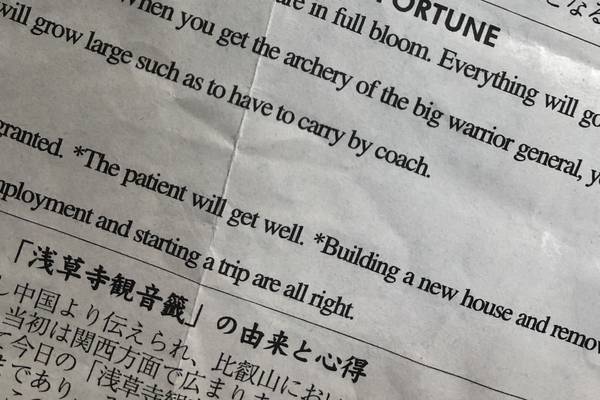 FORTUNE
are in full bloom. Everything will go
When you get the archery of the big warrior general,
will grow large such as to have to carry by coach.
granted. *The patient will get well. *Building a new house and
employment and starting a trip are all right.
「浅草寺観音籤」の由来と心得
中国より伝えられ、比叡山にお
当初は関西方面で広まりま
て今日の「浅草寺観
であり